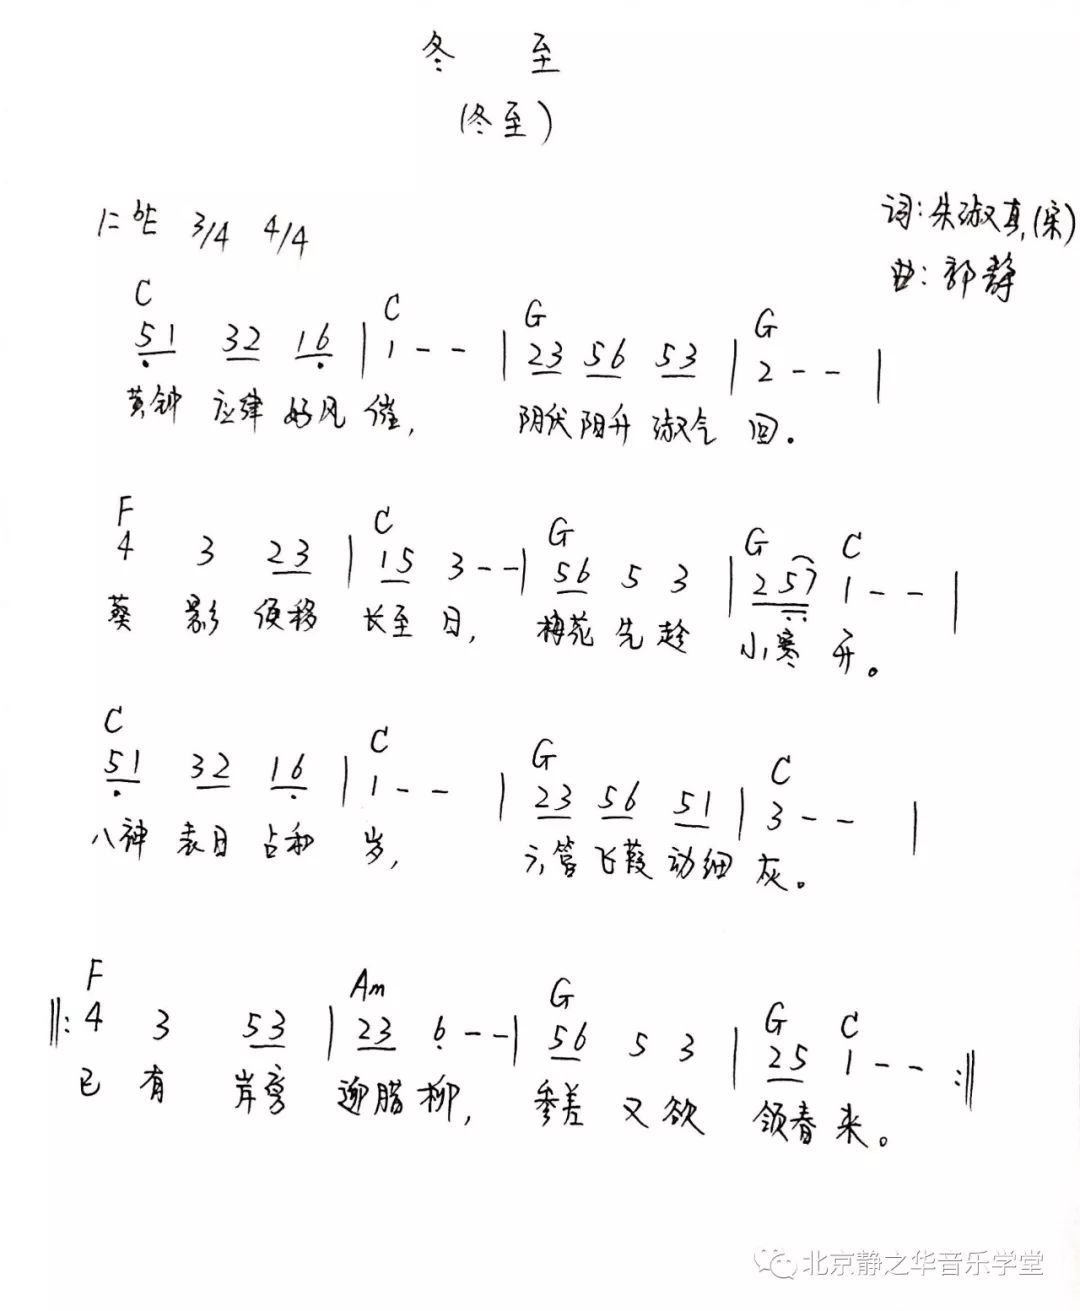 冬 至
(冬至)
1=bE 3/4 4/4
词:朱淑真(宋)
曲:郭静
C C G G
51 32 16 | 1 - - | 23 56 53 | 2 - - |
黄钟 应律 好风 催, 阴伏 阳升 淑气 回.
F C G G C
4 3 23 | 15 3 - - | 56 5 3 | 257 1 - - |
葵 影 便移 长至 日, 梅花 先 趁 小寒 开。
C C G C
51 32 16 | 1 - - | 23 56 51 | 3 - - |
八神 表日 占和 岁, 六管 飞葭 动细 灰。
F Am G G C
‖: 4 3 53 | 23 6 - - | 56 5 3 | 25 1 - - :‖
已 有 岸旁 迎腊 柳, 参差 又 欲 领春 来。
北京静之华音乐学堂